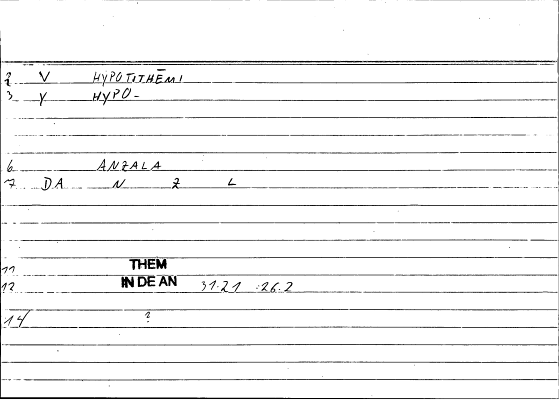 2 V HYPOTITHĒMI
3 Y HYPO-
6 ANZALA
7 DA N Z L
11 THEM
12 IN DE AN 31.21 :26.2
14/ ?